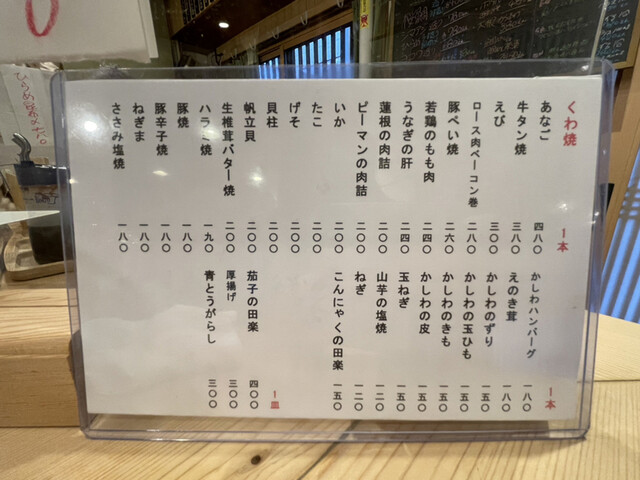 くわ焼 1本
あなご 四八〇
牛タン焼 三八〇
えび 三〇〇
ロース肉ベーコン巻 二八〇
豚ぺい焼 二六〇
若鶏のもも肉 二四〇
うなぎの肝 二四〇
蓮根の肉詰 二〇〇
ピーマンの肉詰 二〇〇
いか 二〇〇
たこ 二〇〇
げそ 二〇〇
貝柱 二〇〇
帆立貝 二〇〇
生椎茸バター焼 二〇〇
ハラミ焼 一九〇
豚焼 一八〇
豚辛子焼 一八〇
ねぎま 一八〇
ささみ塩焼 一八〇
1本
かしわハンバーグ 一八〇
えのき茸 一八〇
かしわのずり 一五〇
かしわの玉ひも 一五〇
かしわのきも 一五〇
かしわの皮 一五〇
玉ねぎ 一五〇
山芋の塩焼 一二〇
ねぎ 一二〇
こんにゃくの田楽 一五〇
1皿
茄子の田楽 四〇〇
厚揚げ 三〇〇
青とうがらし 三〇〇